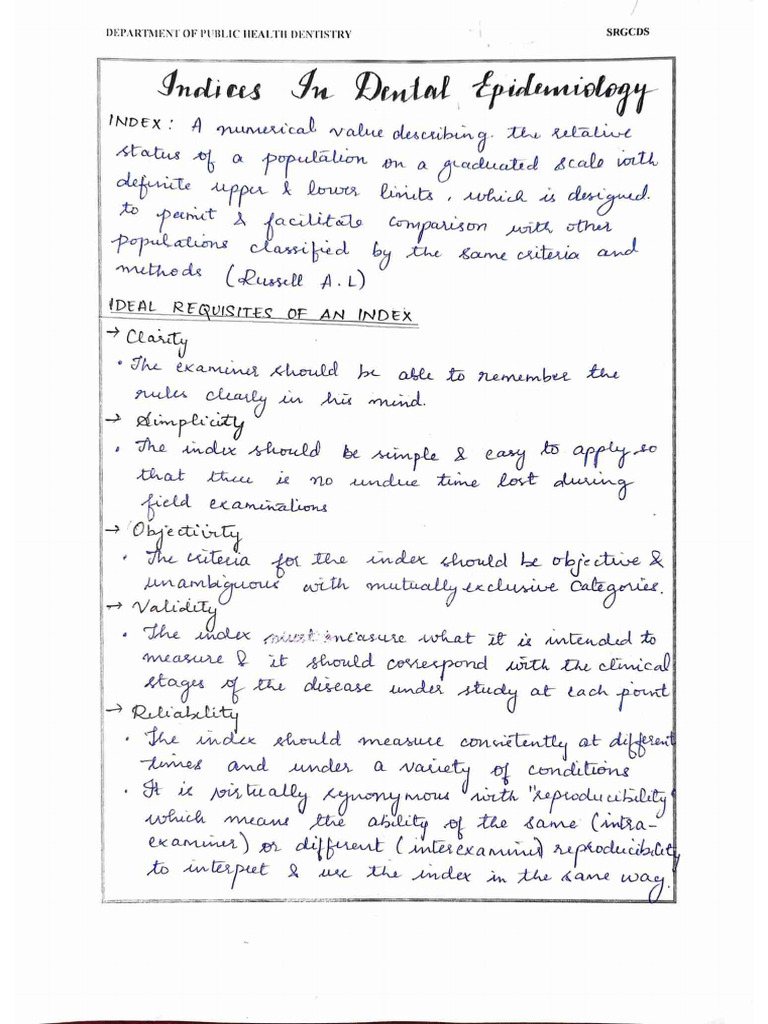 DEPARTMENT OF PUBLIC HEALTH DENTISTRY SRGCDS
Indices In Dental Epidemiology
INDEX: A numerical value describing. the relative
status of a population on a graduated scale with
definite upper & lower limits, which is designed.
to permit & facilitate comparison with other
populations classified by the same criteria and
methods (Russell A.L)
IDEAL REQUISITES OF AN INDEX
→ Clarity
• The examiner should be able to remember the
rules clearly in his mind.
→ Simplicity
• The index should be simple & easy to apply so
that there is no undue time lost during
field examinations
→ Objectivity
• The criteria for the index should be objective &
unambiguous with mutually exclusive categories.
→ Validity
• The index must measure what it is intended to
measure & it should correspond with the clinical
stages of the disease under study at each point
→ Reliability
• The index should measure consistently at different
times and under a variety of conditions
• It is virtually synonymous with "reproducibility"
which means the ability of the same (intra-
examiner) or different (interexaminer) reproducibility
to interpret & use the index in the same way.